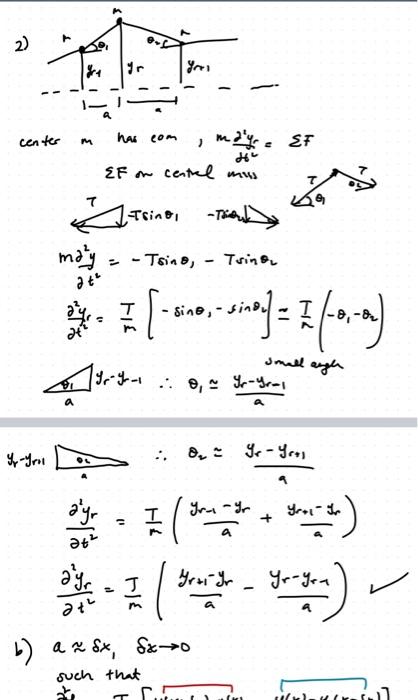 2)
m m m
θ₁ θ₂
yr-1 yr yr+1
a a
center m has eom , m ∂²yr/∂t² = ΣF
ΣF on central mass
T T
θ₁ θ₂
T -Tsinθ₁ -Tsinθ₂
m∂²y/∂t² = -Tsinθ₁ - Tsinθ₂
∂²yr/∂t² = T/m [-sinθ₁ - sinθ₂] = T/m (-θ₁ - θ₂)
small angle
θ₁ yr-yr-1 ∴ θ₁ ≈ yr-yr-1/a
a
yr-yr+1 θ₂ ∴ θ₂ ≈ yr-yr+1/a
a
∂²yr/∂t² = T/m (yr-1-yr/a + yr+1-yr/a)
∂²yr/∂t² = T/m (yr+1-yr/a - yr-yr-1/a) ✓
b) a ≈ δx, δx→0
such that